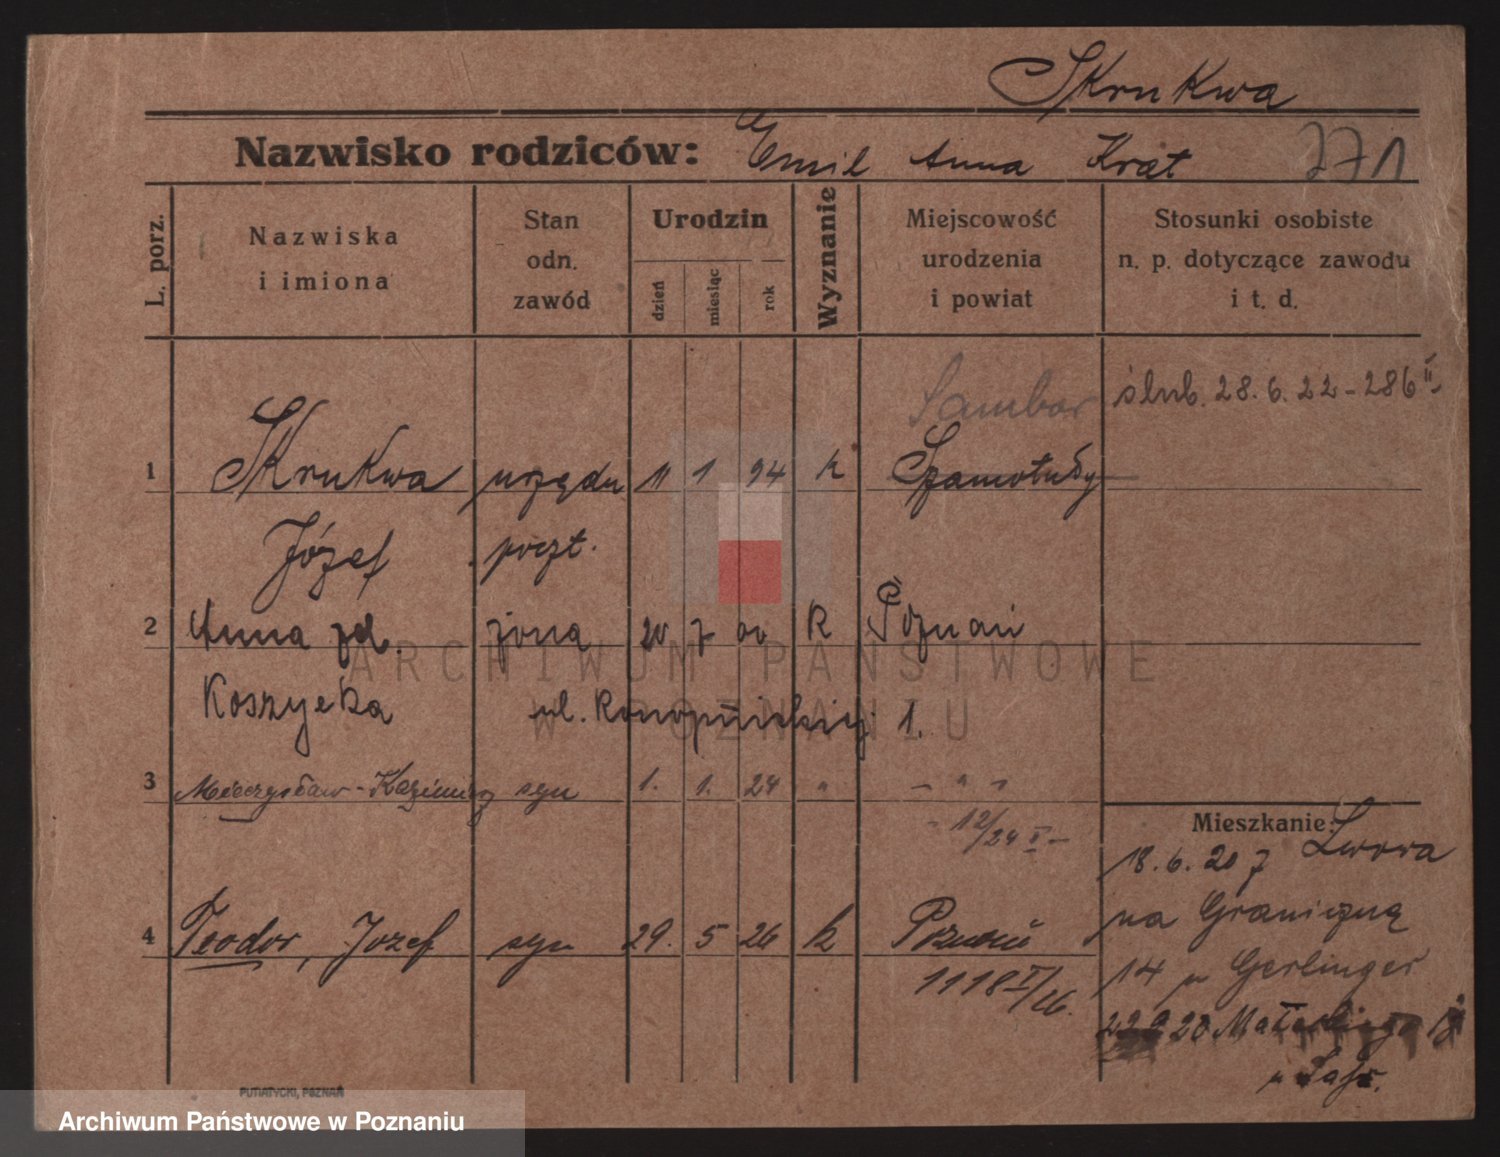 Skrukwa
Nazwisko rodziców: Emil Anna Krat 771
L. porz.
Nazwiska i imiona
Stan odn. zawód
Urodzin
dzień miesiąc rok
Wyznanie
Miejscowość urodzenia i powiat
Stosunki osobiste n. p. dotyczące zawodu i t. d.
Sambor ślub. 28.6.22 - 286 II
1 Skrukwa urzędn 11 1 94 k Szamotuły
Józef poczt.
2 Anna zd. żona 20 7 00 k Poznań
Koszycka ul. Konopnickiej 1.
3 Mieczysław-Kazimierz syn 1. 1. 24 " - " -
- 12/24 II -
Mieszkanie:
18.6.20 z Lwowa
na Graniczną
4 Teodor, Jozef syn 29. 5 26 k Poznań
14 p Gerlinger
1118 I/26.
20 Małeckiego
PUTIATYCKI, POZNAŃ
ARCHIWUM PAŃSTWOWE
W POZNANIU
Archiwum Państwowe w Poznaniu